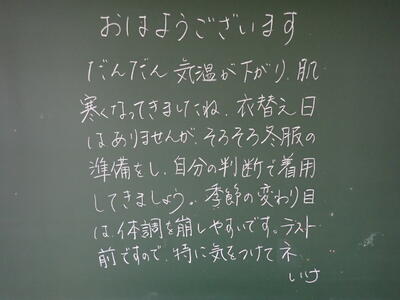 おはようございます
だんだん気温が下がり、肌
寒くなってきましたね。衣替え日
はありませんが、そろそろ冬服の
準備をし、自分の判断で着用
してきましょう。季節の変わり目
は、体調を崩しやすいです。テスト
前ですので、特に気をつけてネ
いけ